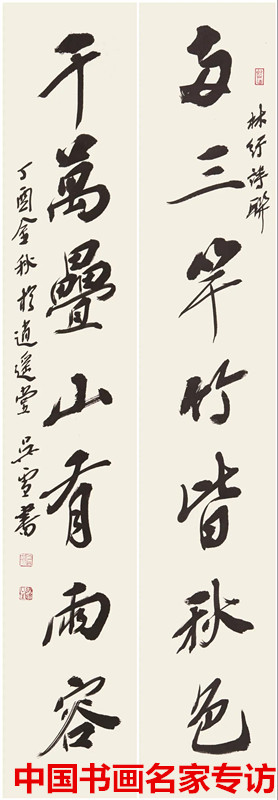 林纾诗联
两三竿竹皆秋色
千萬疊山看雨容
丁酉金秋於逍遥堂 吴雪書
中国书画名家专访